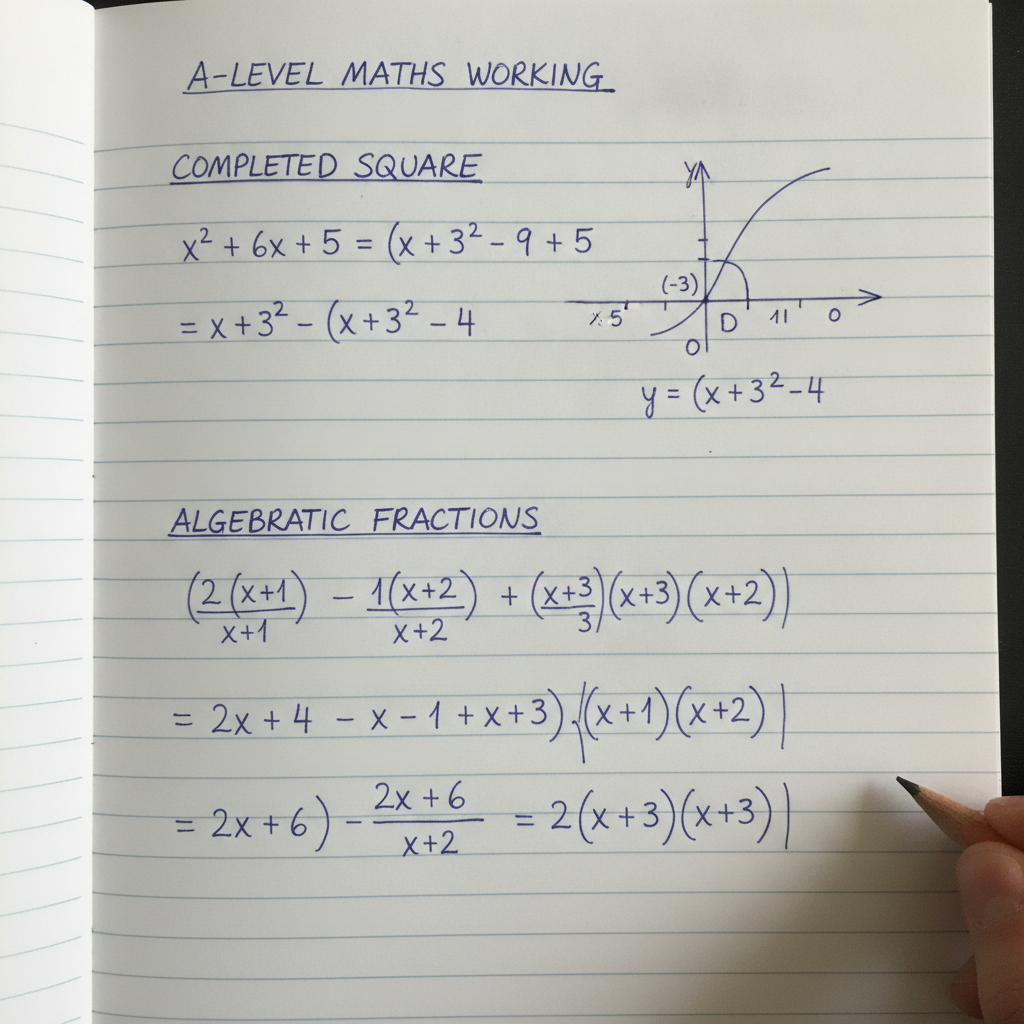 A-LEVEL MATHS WORKING
COMPLETED SQUARE
x² + 6x + 5 = (x + 3² - 9 + 5
= x + 3² - (x + 3² - 4
y
(-3)
x 5 D 11 0
0
y = (x + 3² - 4
ALGEBRATIC FRACTIONS
(2(x+1)/x+1) - 1(x+2)/x+2 + (x+3/3)(x+3)(x+2)|
= 2x + 4 - x - 1 + x + 3) (x+1)(x+2)|
= 2x + 6) - 2x + 6/x+2 = 2(x+3)(x+3)|